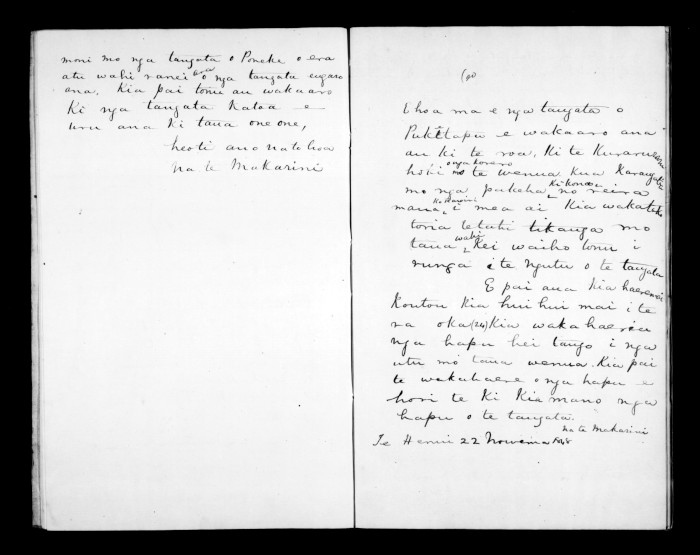 moni mo nga tangata o Poneke o era
atu wahi ranei o nga tangata
era
ana. Kia pai tonu au wakaaro
Ki nga tangata Katoa e
uru ana Ki taua oneone,
heoti ano na to hoa
na te Makarini
E hoa ma e nga tangata o
Puketapu e wakaaro ana
au ki te roa, Ki te
hoki o nga korero
mo te wenua kua Karanga
mo nga pakeha Ki konei no reira
mana i mea ai Kia wakatika
toria tetahi tikanga mo
taua wahi Kei waiho tonu i
runga i te ngutu o te tangata
E pai ana Kia haere mai
Koutou Kia huihui mai i te
ra oka (24) Kia wakahaerea
nga hapu hei tango i nga
utu mo taua wenua. Kia pai
te wakahaere o nga hapu e
hori te Ki Kia mano nga
hapu o te tangata.
na te Makarini
Te Henui 22 Nowema 1848